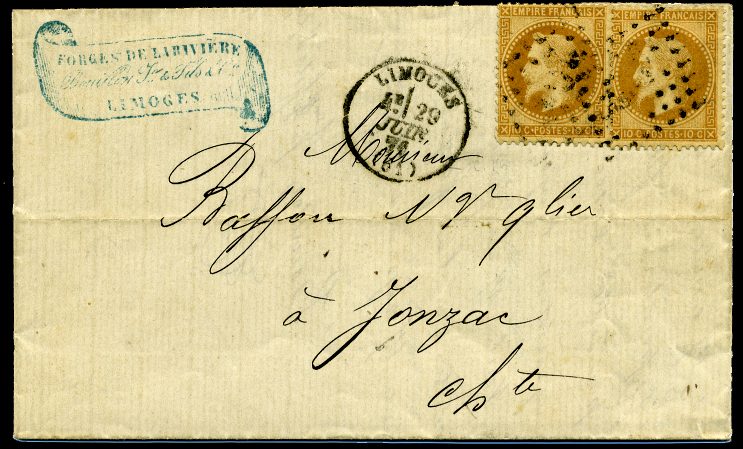 FORGES DE LARIVIÈRE
Fils & Cie
LIMOGES
LIMOGES
1E/ 29
JUIN
(81)
EMPIRE FRANÇAIS
10 C · POSTES · 10 C
EMPIRE FRANÇAIS
10 C · POSTES · 10 C
Monsieur
Baffou Nt
à Jonzac
Chte